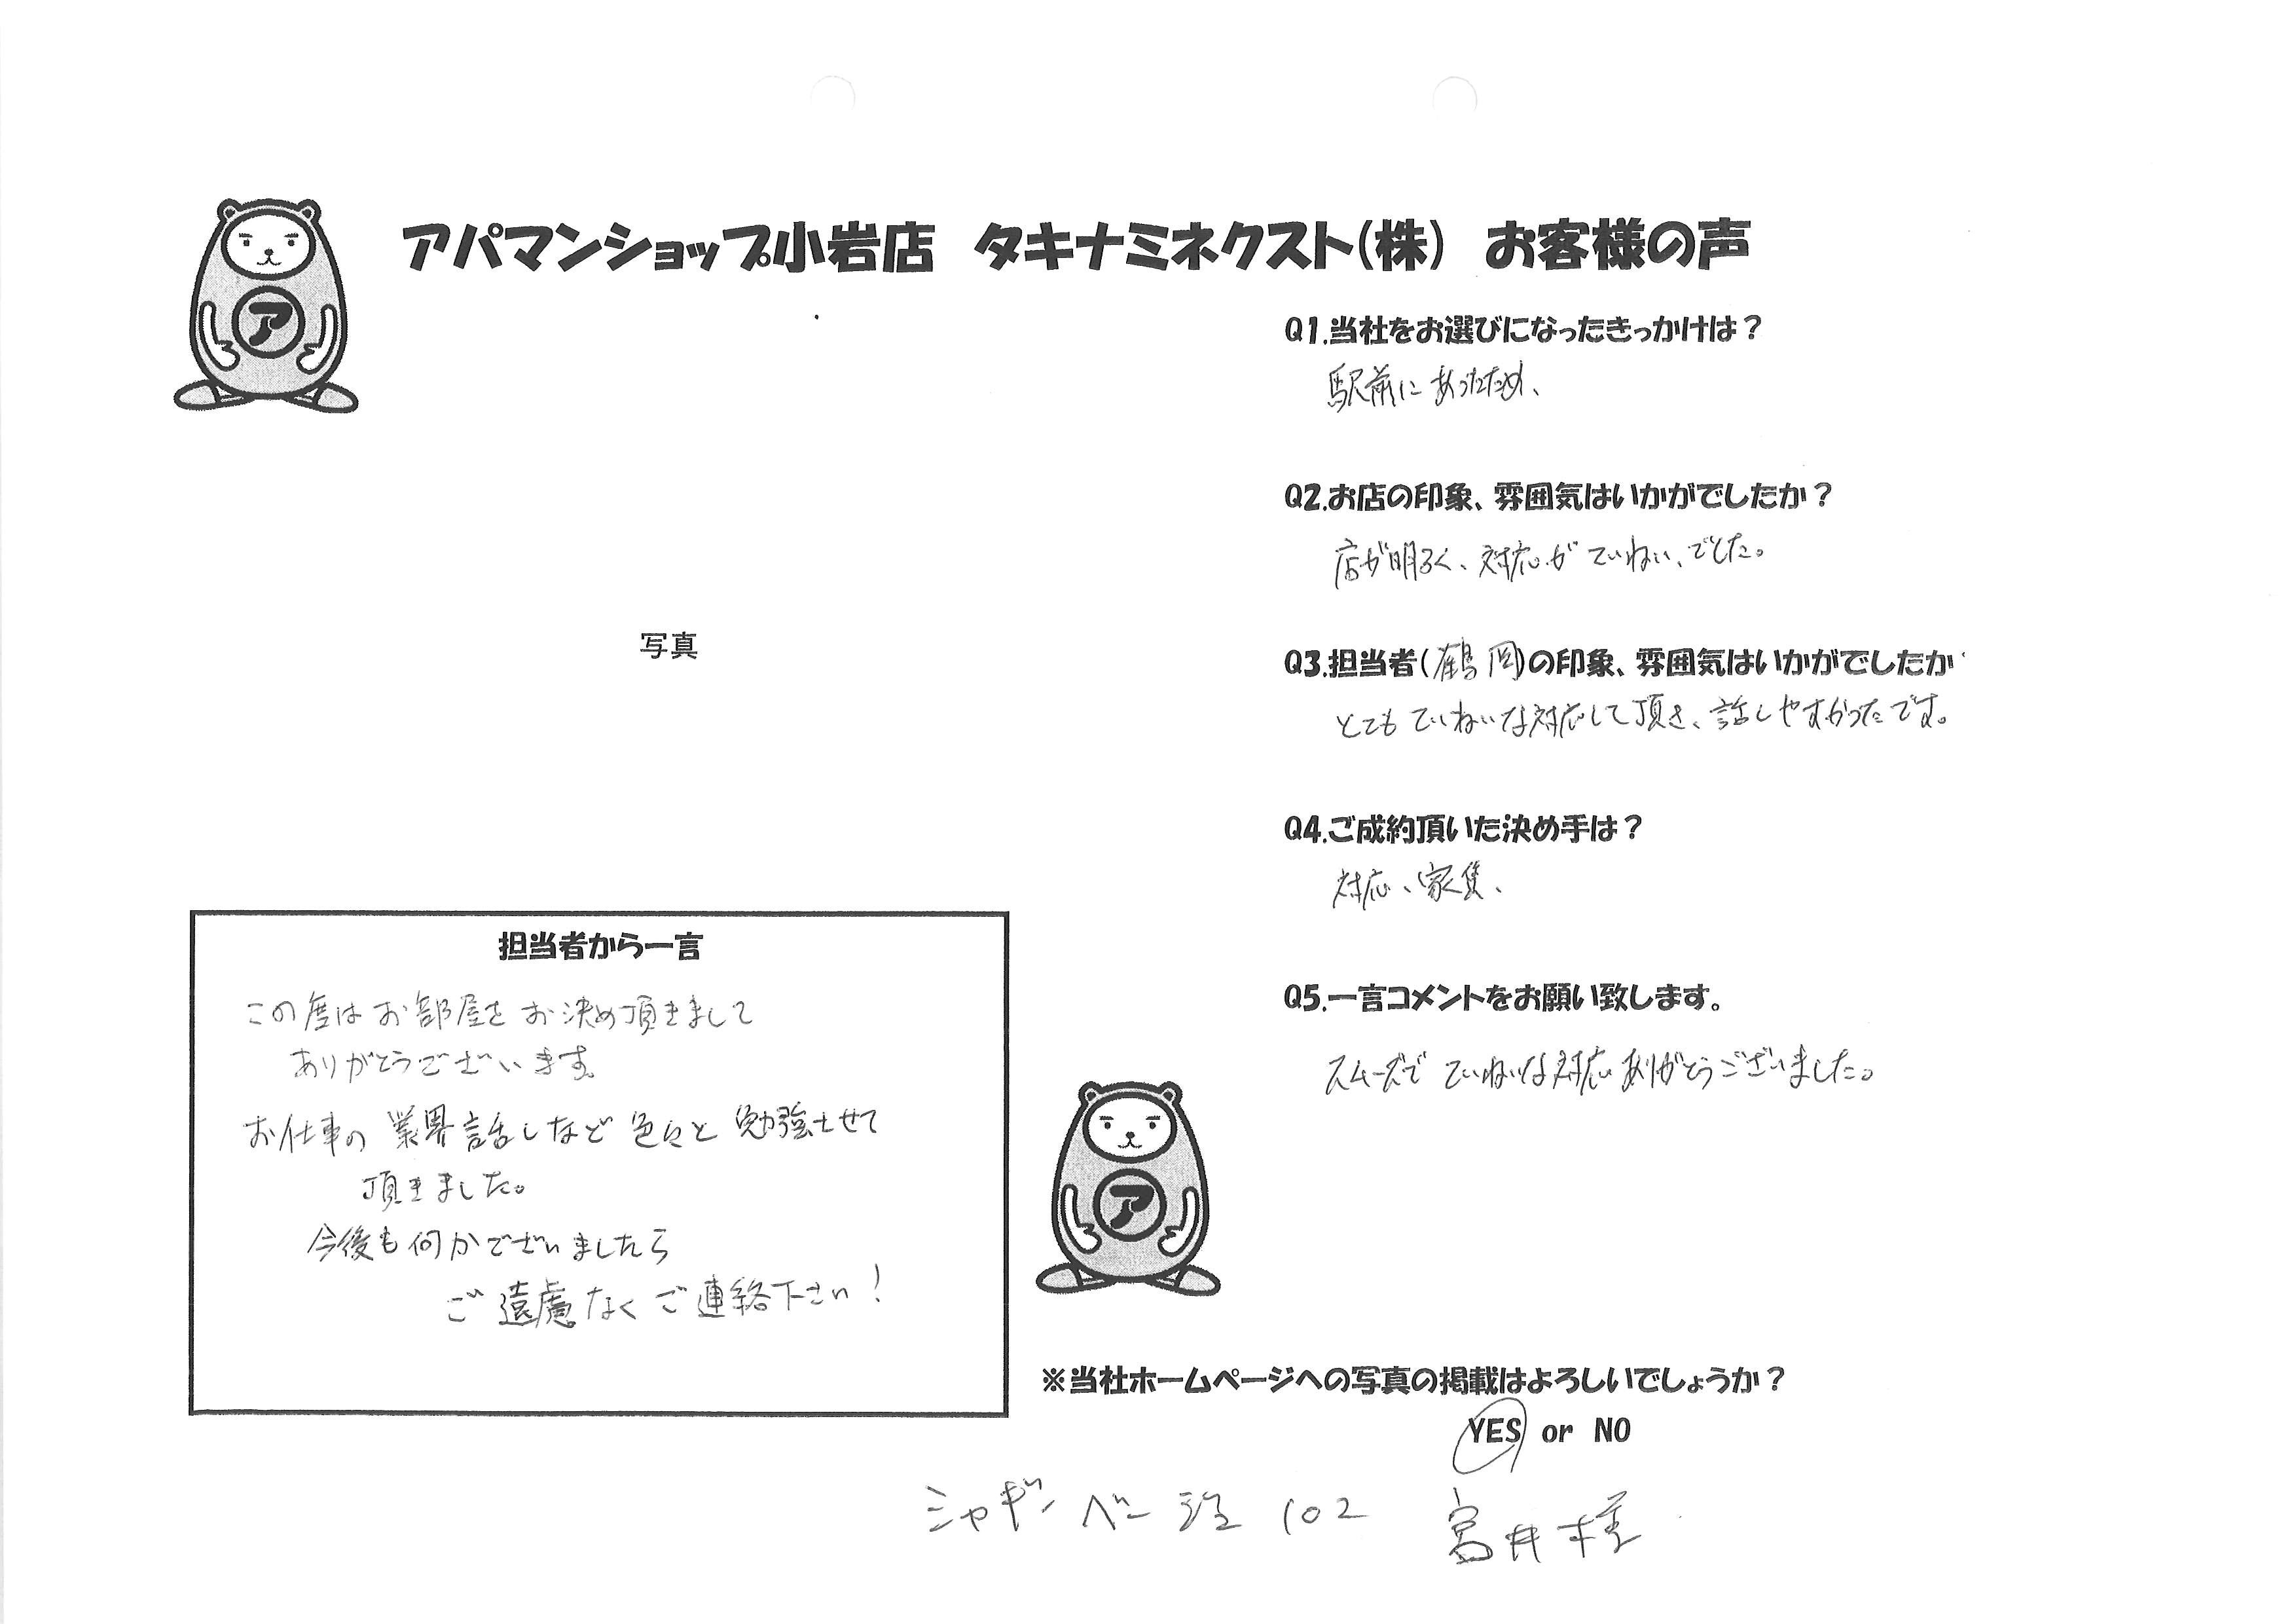 アパマンショップ小岩店 タキナミネクスト(株) お客様の声
ア
Q1.当社をお選びになったきっかけは?
駅前にあったため、
Q2.お店の印象、雰囲気はいかがでしたか?
店が明るく、対応がていねい、でした。
写真
Q3.担当者(鶴岡)の印象、雰囲気はいかがでしたか
とてもていねいな対応して頂き、話しやすかったです。
Q4.ご成約頂いた決め手は?
対応、家賃、
担当者から一言
この度はお部屋をお決め頂きまして
ありがとうございます。
お仕事の業界話しなど色々と勉強させて
頂きました。
今後も何かございましたら
ご遠慮なくご連絡下さい!
Q5.一言コメントをお願い致します。
スムーズでていねいな対応ありがとうございました。
ア
※当社ホームページへの写真の掲載はよろしいでしょうか?
YES or NO
102 宮井様